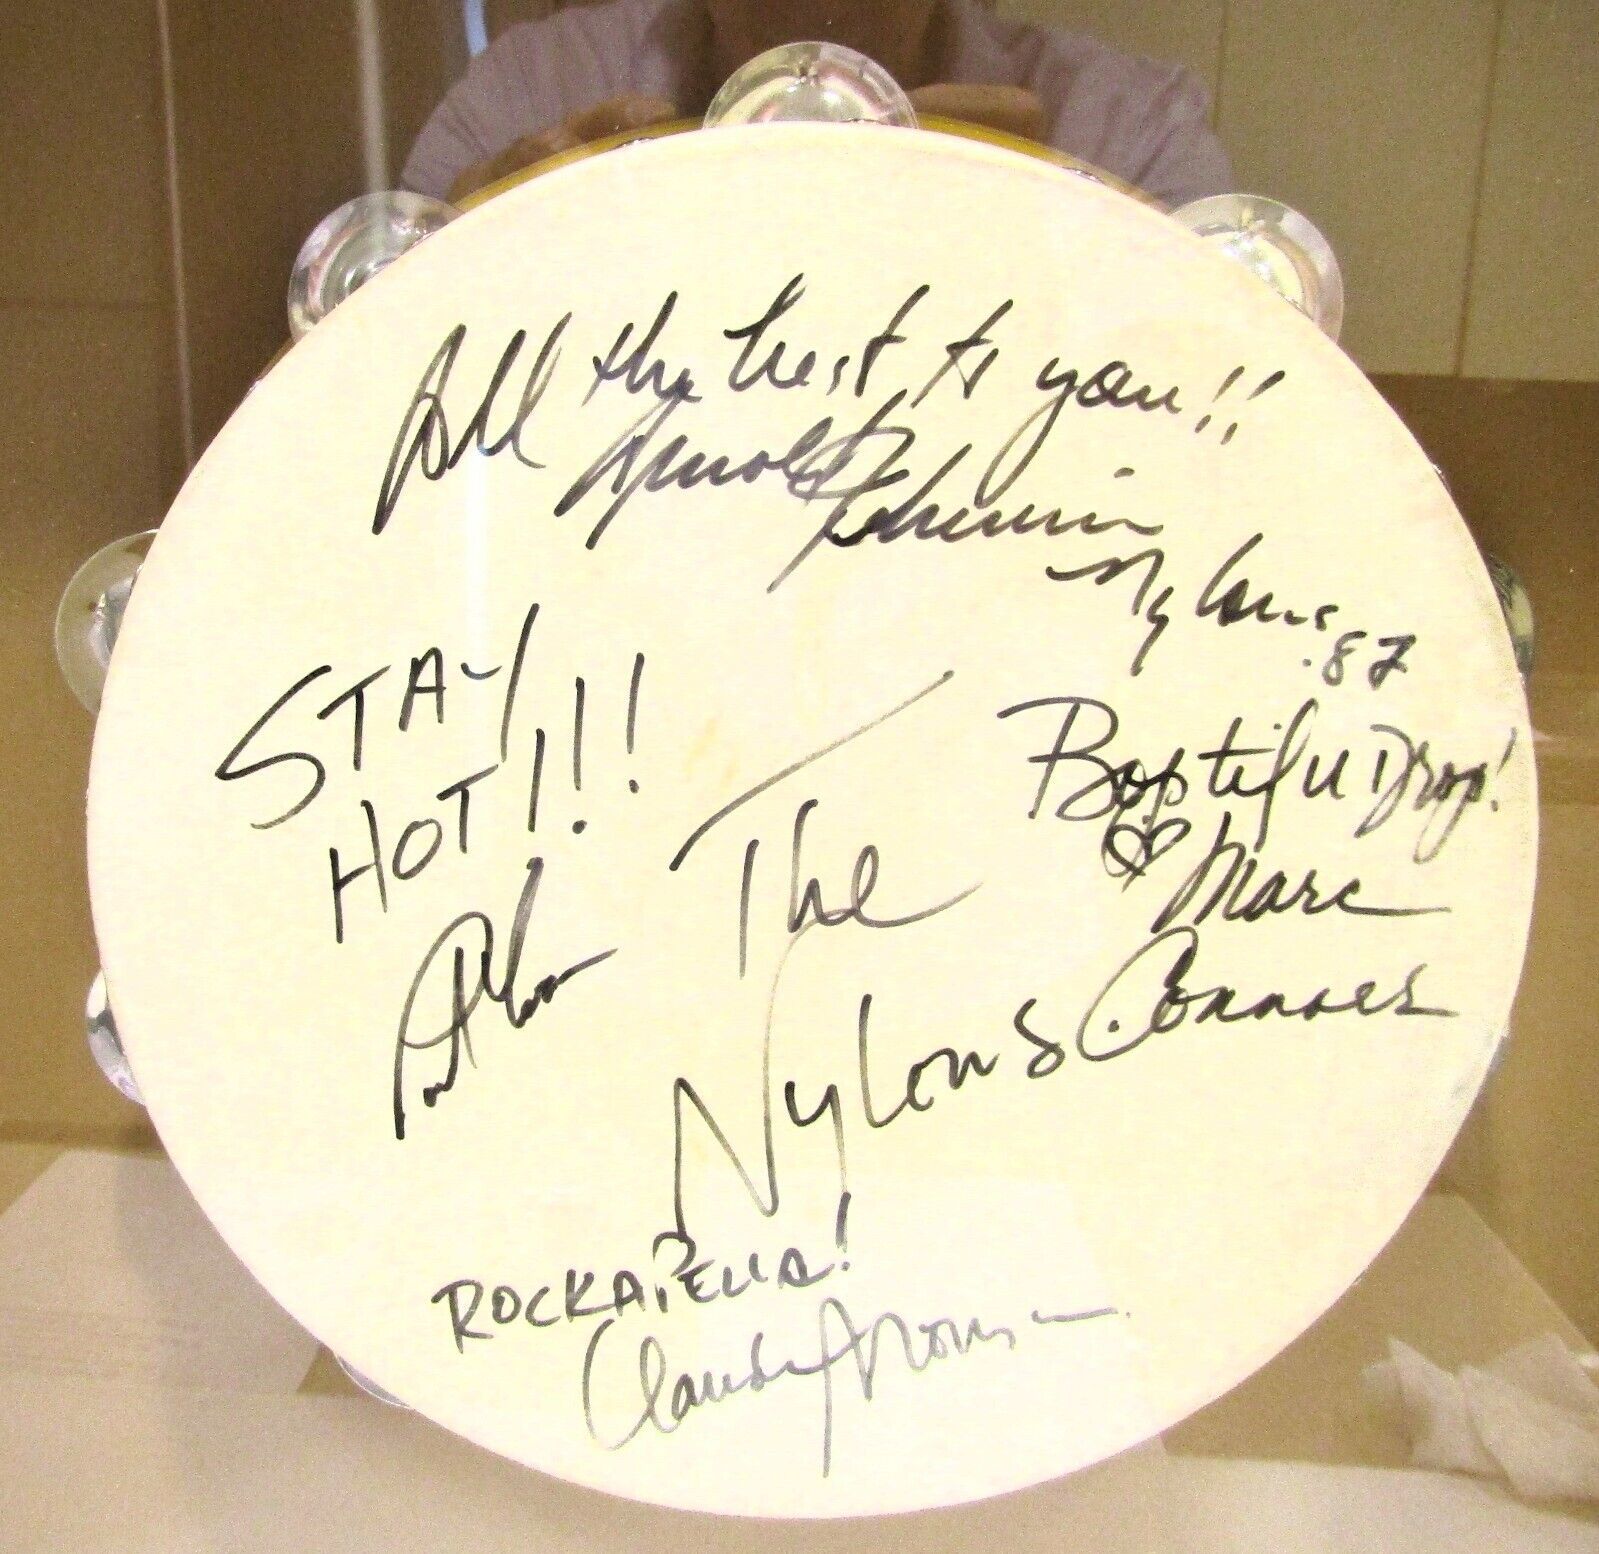 All the best to you!!
Arnold Robinson
Nylons .87
STAY
HOT!!!
Paul
The
Nylons
Boptiful Drop!
♡ Marc
Connors
ROCKAPELLA!
Claude Morrison